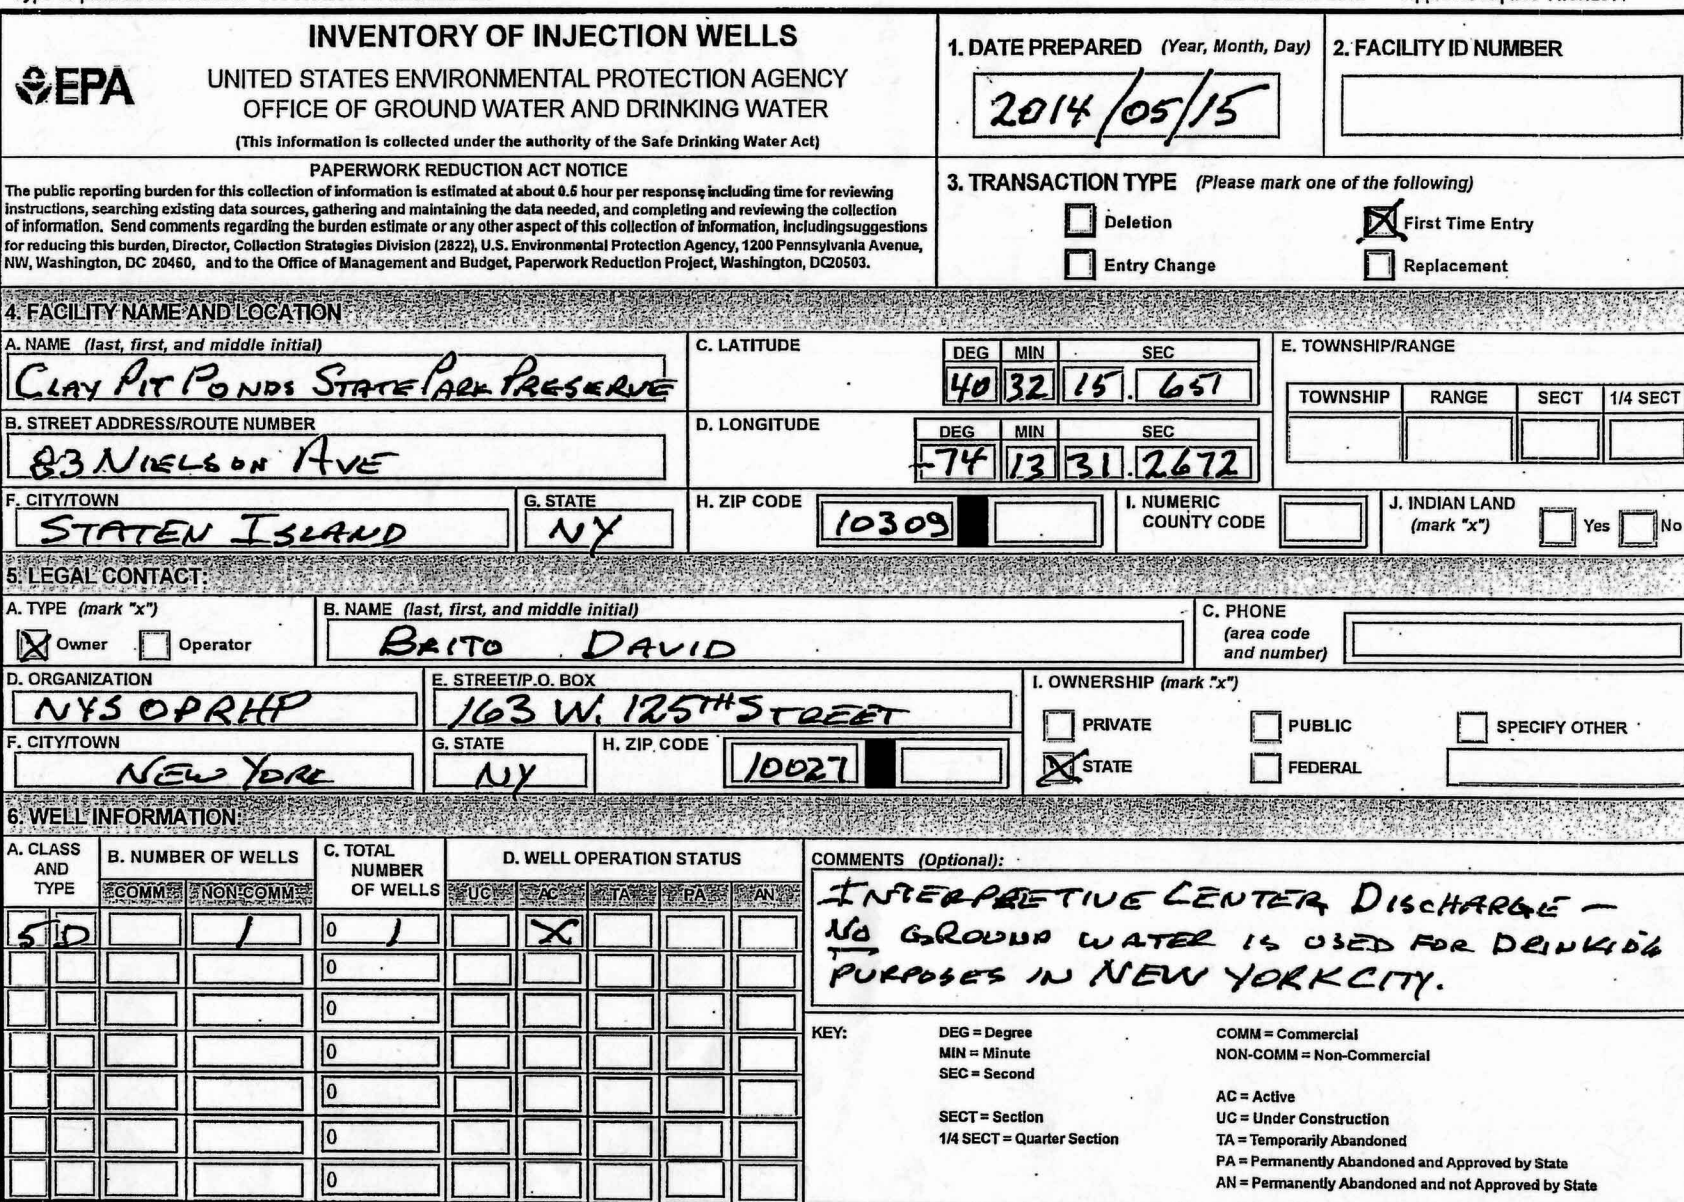 INVENTORY OF INJECTION WELLS
EPA
UNITED STATES ENVIRONMENTAL PROTECTION AGENCY
OFFICE OF GROUND WATER AND DRINKING WATER
(This information is collected under the authority of the Safe Drinking Water Act)
PAPERWORK REDUCTION ACT NOTICE
The public reporting burden for this collection of information is estimated at about 0.5 hour per response including time for reviewing
instructions, searching existing data sources, gathering and maintaining the data needed, and completing and reviewing the collection
of information. Send comments regarding the burden estimate or any other aspect of this collection of information, includingsuggestions
for reducing this burden, Director, Collection Strategies Division (2822), U.S. Environmental Protection Agency, 1200 Pennsylvania Avenue,
NW, Washington, DC 20460, and to the Office of Management and Budget, Paperwork Reduction Project, Washington, DC20503.
1. DATE PREPARED (Year, Month, Day)
2014/05/15
2. FACILITY ID NUMBER
3. TRANSACTION TYPE (Please mark one of the following)
Deletion
X First Time Entry
Entry Change
Replacement
4. FACILITY NAME AND LOCATION
A. NAME (last, first, and middle initial)
CLAY PIT PONDS STATE PARK PRESERVE
B. STREET ADDRESS/ROUTE NUMBER
83 NIELSON AVE
C. LATITUDE
DEG MIN SEC
40 32 15.651
D. LONGITUDE
DEG MIN SEC
-74 13 31.2672
E. TOWNSHIP/RANGE
TOWNSHIP RANGE SECT 1/4 SECT
F. CITY/TOWN
STATEN ISLAND
G. STATE
NY
H. ZIP CODE 10309
I. NUMERIC
COUNTY CODE
J. INDIAN LAND
(mark "x") Yes No
5. LEGAL CONTACT:
A. TYPE (mark "x")
X Owner Operator
B. NAME (last, first, and middle initial)
BRITO DAVID
C. PHONE
(area code
and number)
D. ORGANIZATION
NYS OPRHP
E. STREET/P.O. BOX
163 W. 125TH STREET
F. CITY/TOWN
NEW YORK
G. STATE
NY
H. ZIP CODE 10027
I. OWNERSHIP (mark "x")
PRIVATE PUBLIC SPECIFY OTHER
X STATE FEDERAL
6. WELL INFORMATION:
A. CLASS
AND
TYPE
B. NUMBER OF WELLS
COMM NON-COMM
C. TOTAL
NUMBER
OF WELLS
D. WELL OPERATION STATUS
UC AC TA PA AN
5 D 1 0 1 X
0
0
0
0
0
0
COMMENTS (Optional):
INTERPRETIVE CENTER DISCHARGE -
NO GROUND WATER IS USED FOR DRINKING
PURPOSES IN NEW YORK CITY.
KEY:
DEG = Degree
MIN = Minute
SEC = Second
SECT = Section
1/4 SECT = Quarter Section
COMM = Commercial
NON-COMM = Non-Commercial
AC = Active
UC = Under Construction
TA = Temporarily Abandoned
PA = Permanently Abandoned and Approved by State
AN = Permanently Abandoned and not Approved by State